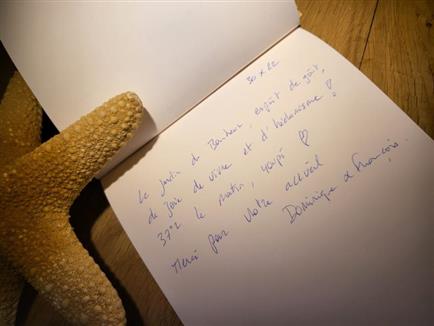 30 x 22
Le Jardin du Bonheur, esprit de goût,
de joie de vivre et d'hédonisme !
37°2 le matin, youpi ♡
Merci pour votre accueil
Dominique & François.